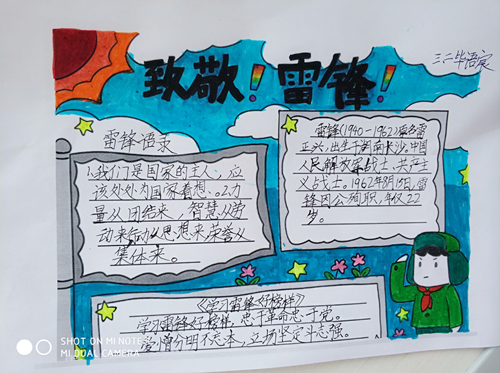 致敬！雷锋！
三二毕语宸
雷锋语录
1、我们是国家的主人，应
该处处为国家着想。2.力
量从团结来，智慧从劳
动来行动从思想来荣誉从
集体来。
雷锋(1940-1962)原名雷
正兴，出生于湖南长沙，中国
人民解放军战士，共产主
义战士。1962年8月15日，雷
锋因公殉职，年仅22
岁。
《学习雷锋好榜样》
学习雷锋好榜样，忠于革命忠于党。
爱憎分明不忘本，立场坚定斗志强。
SHOT ON MI NOTE
MI DUAL CAMERA